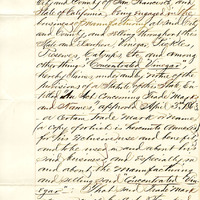 City and County of San Francisco, and
State of California, being engaged in the
business of Manufacturing at said City
and County, and selling throughout this
State and elsewhere Vinegar, Pickles,
Preserves, Catsups, &c. and among
other things "Concentrated Vinegar"
hereby claims, under and by virtue of the
provisions of a Statute of the State en-
titled An Act Concerning Trade Marks
and Names", approved April 3d, 1863
a certain Trade Mark and name,
(a copy of which is hereunto
for his exclusive use and benefit
and to be used in and about his
said business and especially in
and about the Manufacturing
and selling said "Concentrated Vin-
egar". That said Trade Mark